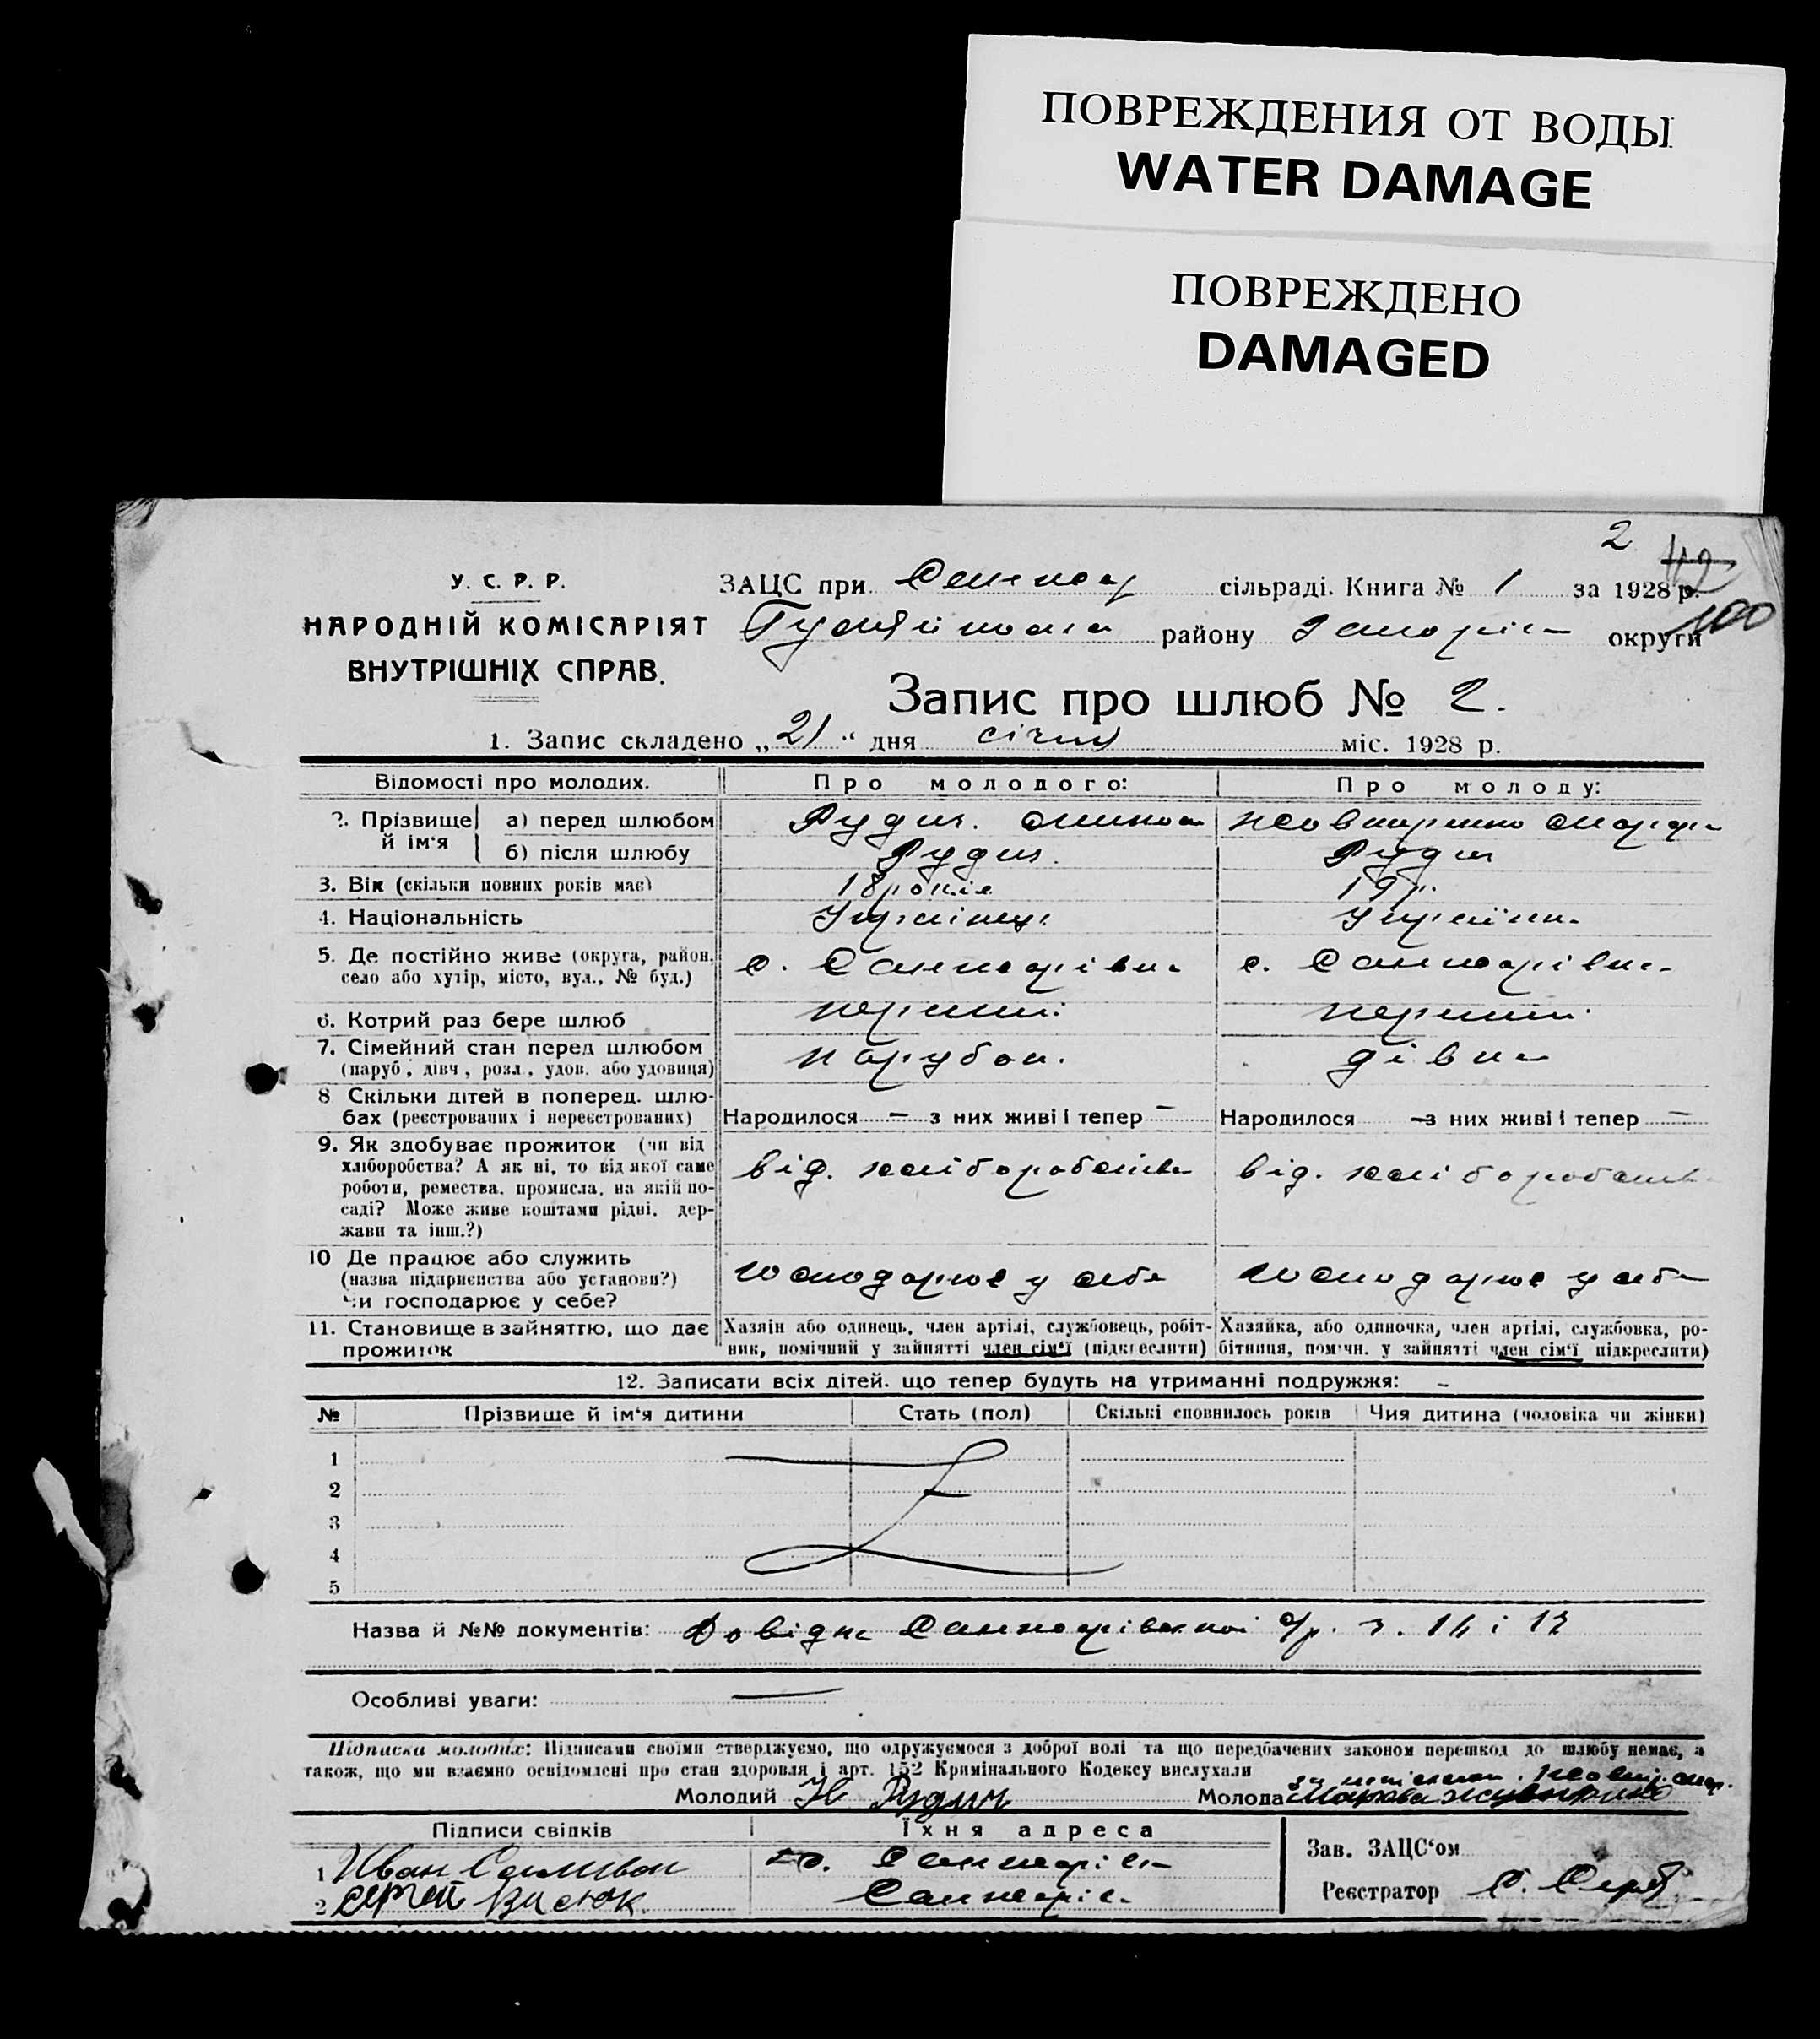 ПОВРЕЖДЕНИЯ ОТ ВОДЫ
WATER DAMAGE
ПОВРЕЖДЕНО
DAMAGED
2
У. С. Р. Р.
НАРОДНІЙ КОМІСАРІЯТ
ВНУТРІШНІХ СПРАВ.
ЗАЦС при сільраді. Книга № 1 за 1928 р.
району округи
100
Запис про шлюб № 2.
1. Запис складено „21“ дня січня міс. 1928 р.
Відомості про молодих. Про молодого: Про молоду:
2. Прізвище й ім‘я а) перед шлюбом Рудич
б) після шлюбу Рудич. Рудич
3. Вік (скільки повних років має) 18 років 19 р.
4. Національність Українец Українк
5. Де постійно живе (округа, район, село або хутір, місто, вул., № буд.) с. с.
6. Котрий раз бере шлюб перший перший
7. Сімейний стан перед шлюбом (паруб., дівч., розл., удов. або удовиця) парубок. дівка
8 Скільки дітей в поперед. шлюбах (реєстрованих і нереєстрованих) Народилося — з них живі і тепер — Народилося — з них живі і тепер —
9. Як здобуває прожиток (чи від хліборобства? А як ні, то від якої саме роботи, ремества, промисла, на якій посаді? Може живе коштами рідні, держави та інш.?) від. хліборобства від. хліборобств
10 Де працює або служить (назва підприємства або установи?) Чи господарює у себе? господарює у себе господарює у себе
11. Становище в зайняттю, що дає прожиток Хазяїн або одинець, член артілі, службовець, робітник, помічний у зайнятті член сім‘ї (підкреслити) Хазяйка, або одиночка, член артілі, службовка, робітниця, поміч. у зайнятті член сім‘ї підкреслити)
12. Записати всіх дітей, що тепер будуть на утриманні подружжя: –
№ Прізвище й ім‘я дитини Стать (пол) Скількі сповнилось років Чия дитина (чоловіка чи жінки)
1
2
3
4
5
Назва й №№ документів: Довідка с/р.
Особливі уваги: —
Підписка молодих: Підписами своїми стверджуємо, що одружуємося з доброї волі та що передбачених законом перешкод до шлюбу немає, а
також, що ми взаємно освідомлені про стан здоровля і арт. 152 Кримінального Кодексу вислухали
Молодий Н Рудич Молода
Підписи свідків Їхня адреса
1 Иван
2 Сергей
Зав. ЗАЦС‘ом
Реєстратор